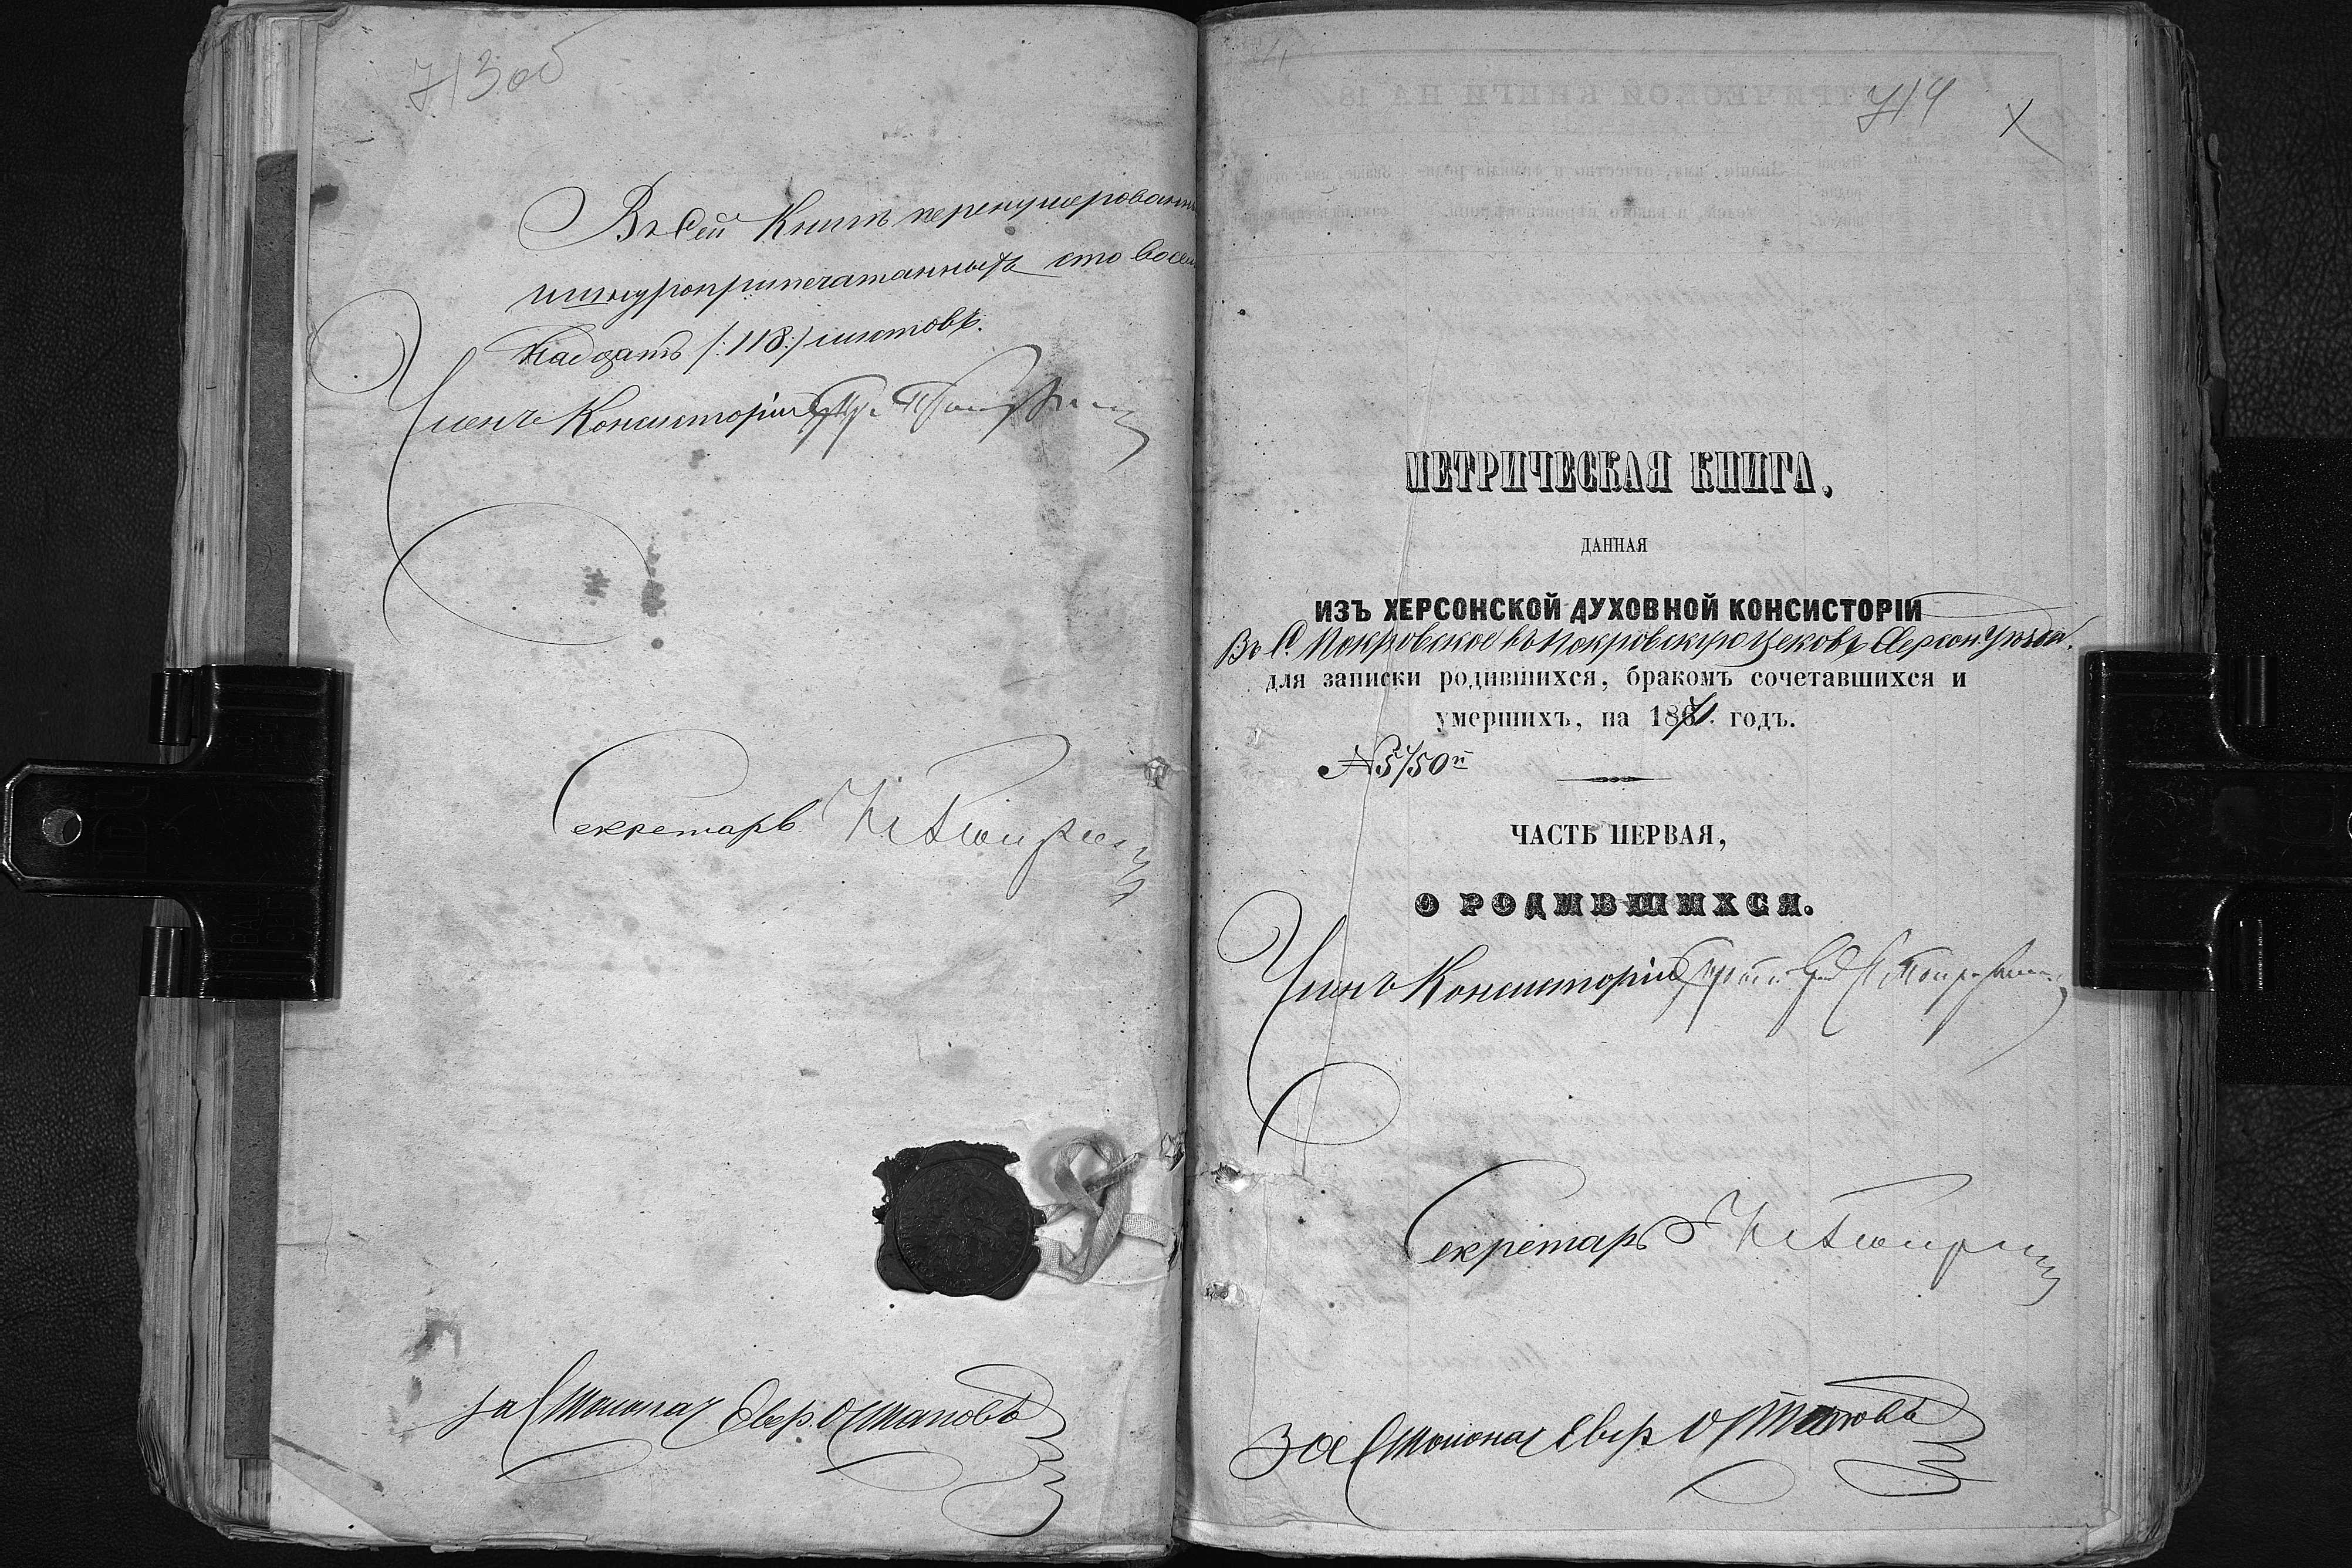 713 об
Въ сей Книгѣ перенумерован
шнуроприпечатанныхъ сто восем
надцать /:118:/ листовъ.
Членъ Консисторіи
Секретарь
За Столонач. Евер. Остаповъ
714
X
МЕТРИЧЕСКАЯ КНИГА,
ДАННАЯ
ИЗЪ ХЕРСОНСКОЙ ДУХОВНОЙ КОНСИСТОРІИ
Въ С. Покровское въ Покровскую церковь Херсон уѣзда.
для записки родившихся, бракомъ сочетавшихся и
умершихъ, на 1871. годъ.
№ 5150й
ЧАСТЬ ПЕРВАЯ,
О РОДИВШИХСЯ.
Членъ Консисторіи
Секретарь
За Столонач Евер Остаповъ